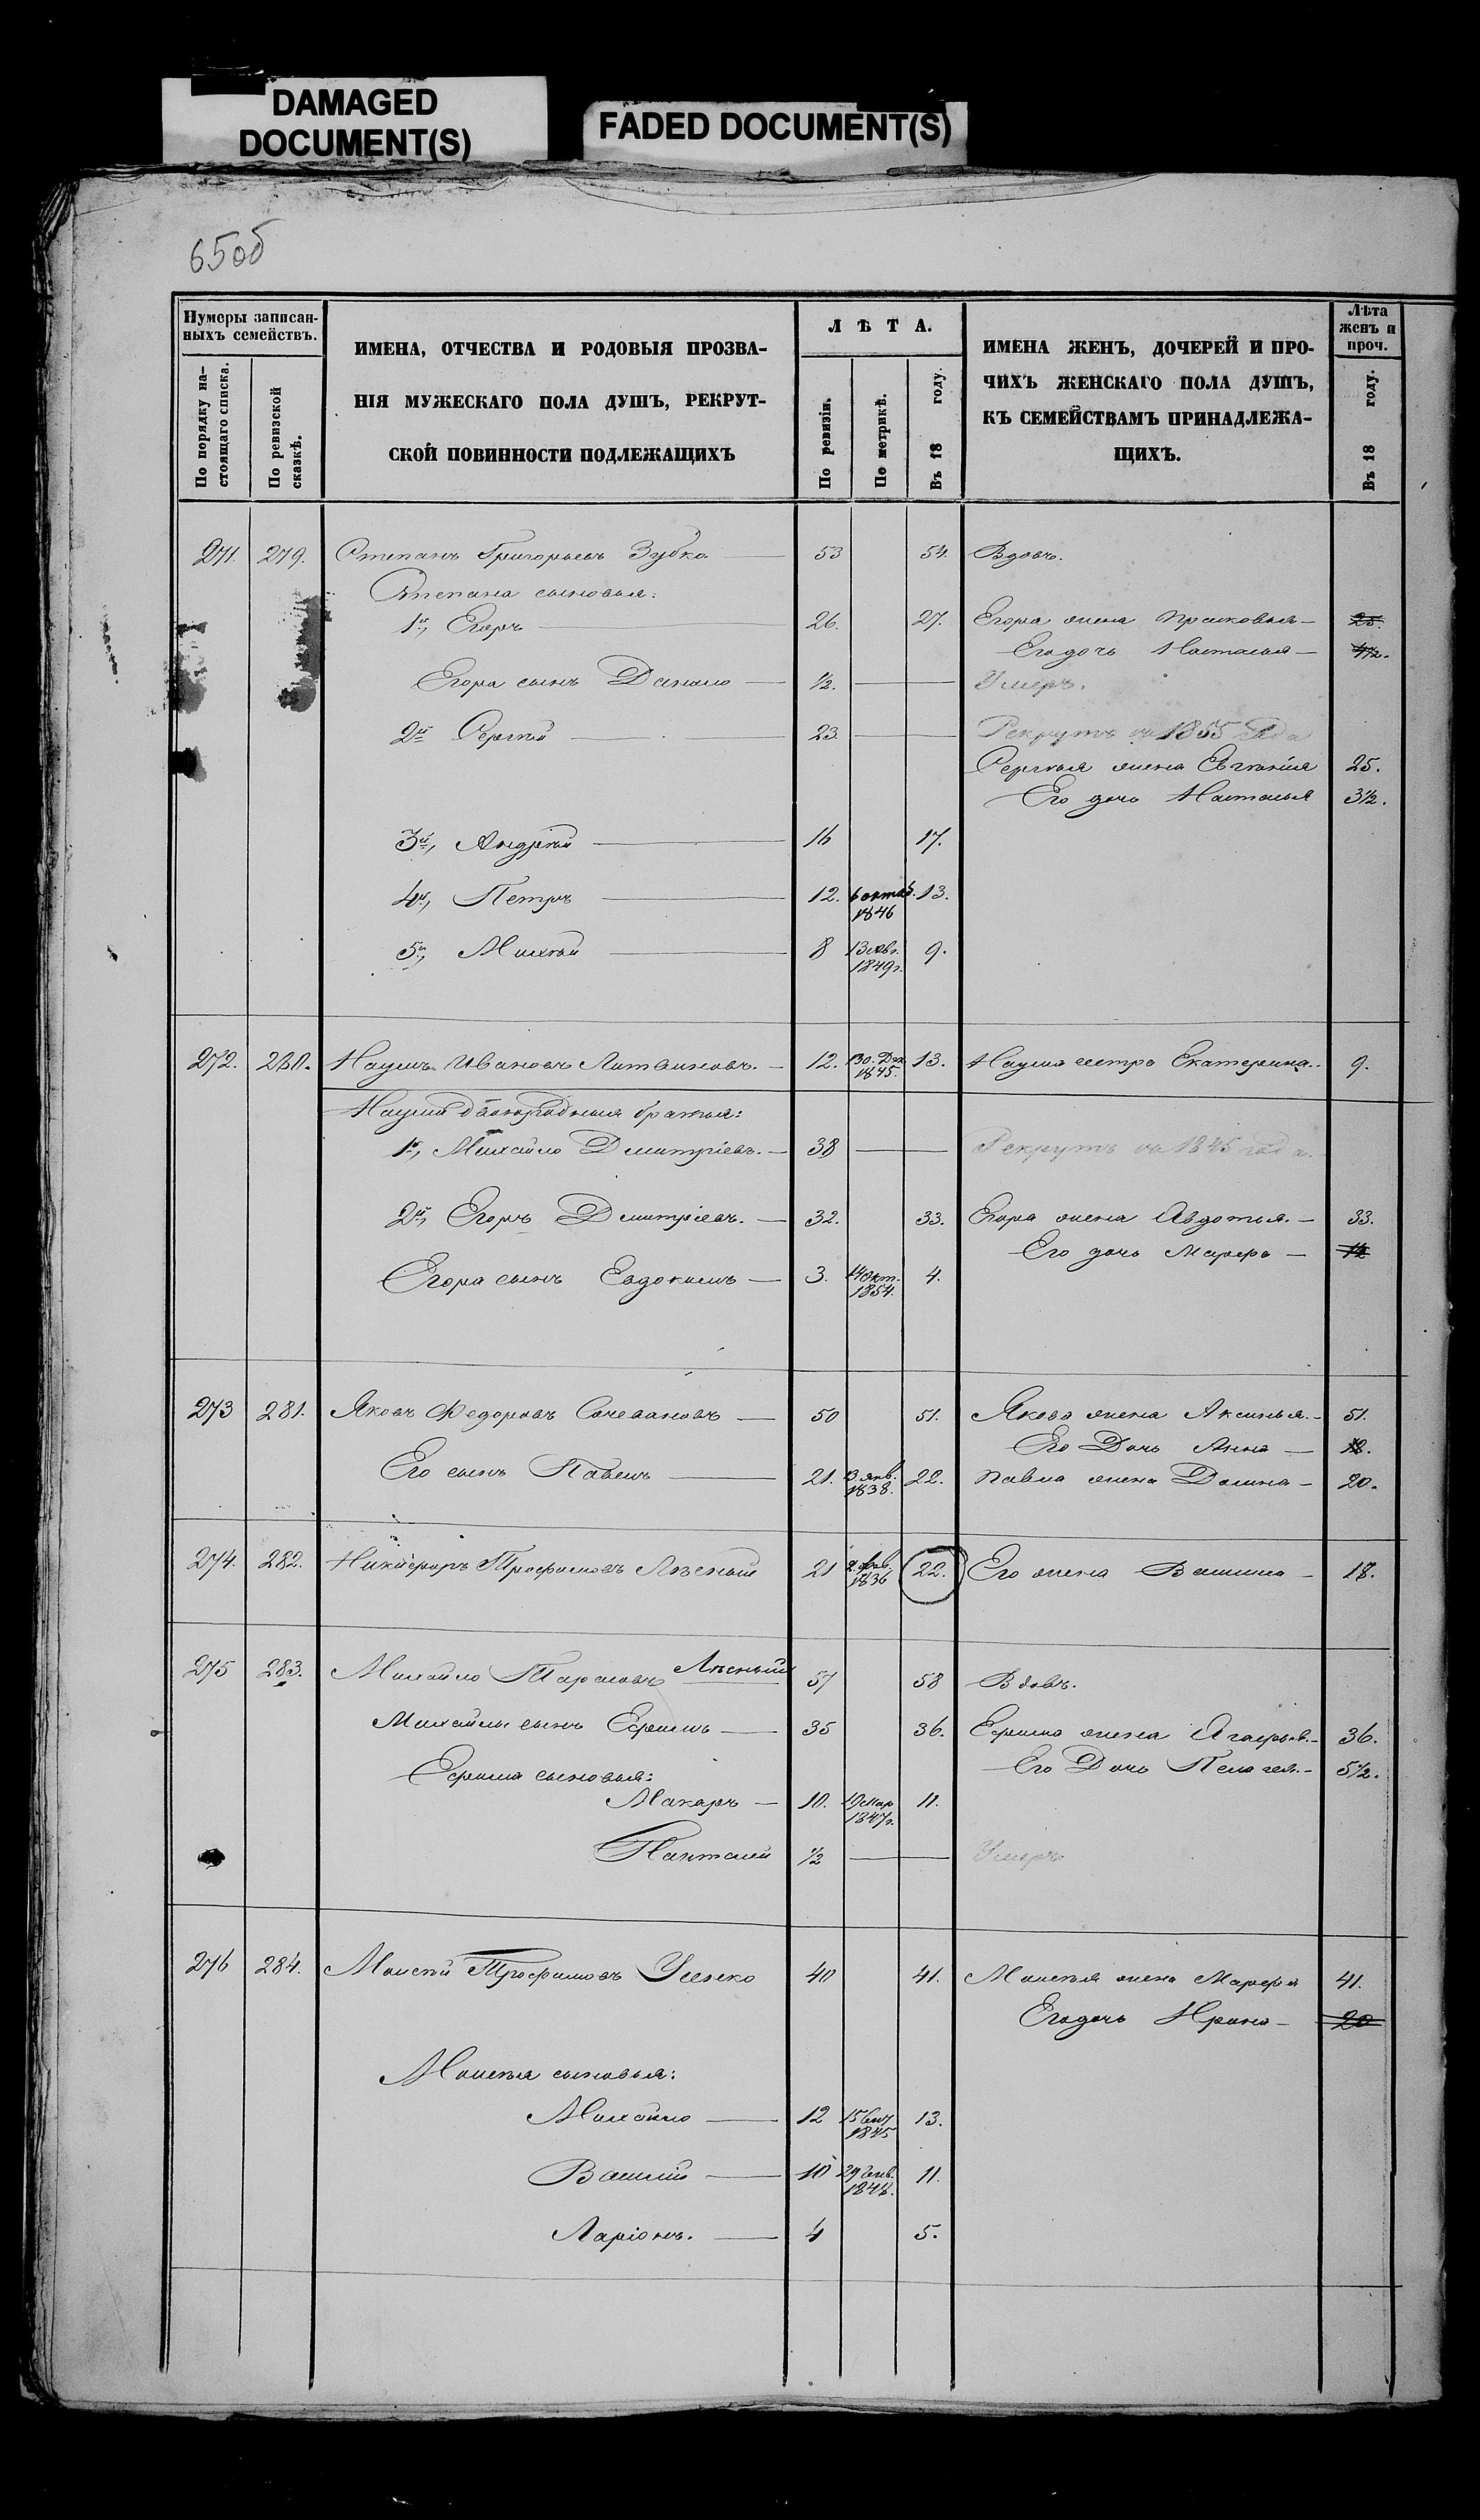 DAMAGED
DOCUMENT(S)
FADED DOCUMENT(S)
65об
Нумеры записан-
ныхъ семействъ.
По порядку на-
стоящаго списка.
По ревизской
сказкѣ.
ИМЕНА, ОТЧЕСТВА И РОДОВЫЯ ПРОЗВА-
НІЯ МУЖЕСКАГО ПОЛА ДУШЪ, РЕКРУТ-
СКОЙ ПОВИННОСТИ ПОДЛЕЖАЩИХЪ
ЛѢТА.
По ревизіи.
По метрикѣ.
Въ 18 году.
ИМЕНА ЖЕНЪ, ДОЧЕРЕЙ И ПРО-
ЧИХЪ ЖЕНСКАГО ПОЛА ДУШЪ,
КЪ СЕМЕЙСТВАМЪ ПРИНАДЛЕЖА-
ЩИХЪ.
Лѣта
женъ и
проч.
Въ 18 году.
271. 279. Степанъ Григорьевъ Зубко 53 54. Вдовъ.
Степана сыновья:
1й, Егоръ 26. 27. Егора жена Прасковья 25.
Его дочь Настасья
Егора сынъ Данило ½. Умеръ.
2й Сергѣй 23. Рекрутъ съ 1855 года
Сергѣя жена Евгенія 25.
Его дочь Настасья 3½.
3й, Андрей 16 17.
4й, Петръ 12. 6 октяб. 1846 13.
5й, Михѣй 8 13 1849г. 9.
272. 280. Наумъ Ивановъ Литвиновъ. 12. 30. Дек. 1845. 13. Наума сестра Екатерина. 9.
Наума двоюродныя братья:
1й, Михайло Дмитріевъ. 38 Рекрутъ съ 1845 года.
2й, Егоръ Дмитріевъ. 32. 33. Егора жена Авдотья. 33.
Его дочь Марфа
Егора сынъ Евдокимъ 3. 14 Окт. 1854. 4.
273 281. Яковъ Федоровъ 50 51. Якова жена Аксинья. 51.
Его Дочь Анна 18.
Его сынъ Павелъ 21. 13 янв. 1838. 22. Павла жена Домна 20.
274. 282. Никифоръ Трофимовъ Лѣсный 21 1836 22. Его жена 18.
275 283. Михайло Тарасовъ Лѣсный 57 58 Вдовъ.
Михайлы сынъ Ефимъ 35 36. Ефима жена Агафья. 36.
Его Дочь Пелагея. 5½.
Ефима сыновья:
Макаръ 10. 19 мар 1847г. 11.
Пантелей ½ Умеръ
276 284. Моисѣй Трофимовъ Усенко 40 41. Моисѣя жена Марфа 41.
Его дочь Ирина 20
Моисѣя сыновья:
Михайло 12 15 1845 13.
Василій 10 29 11.
Ларіонъ. 4 5.